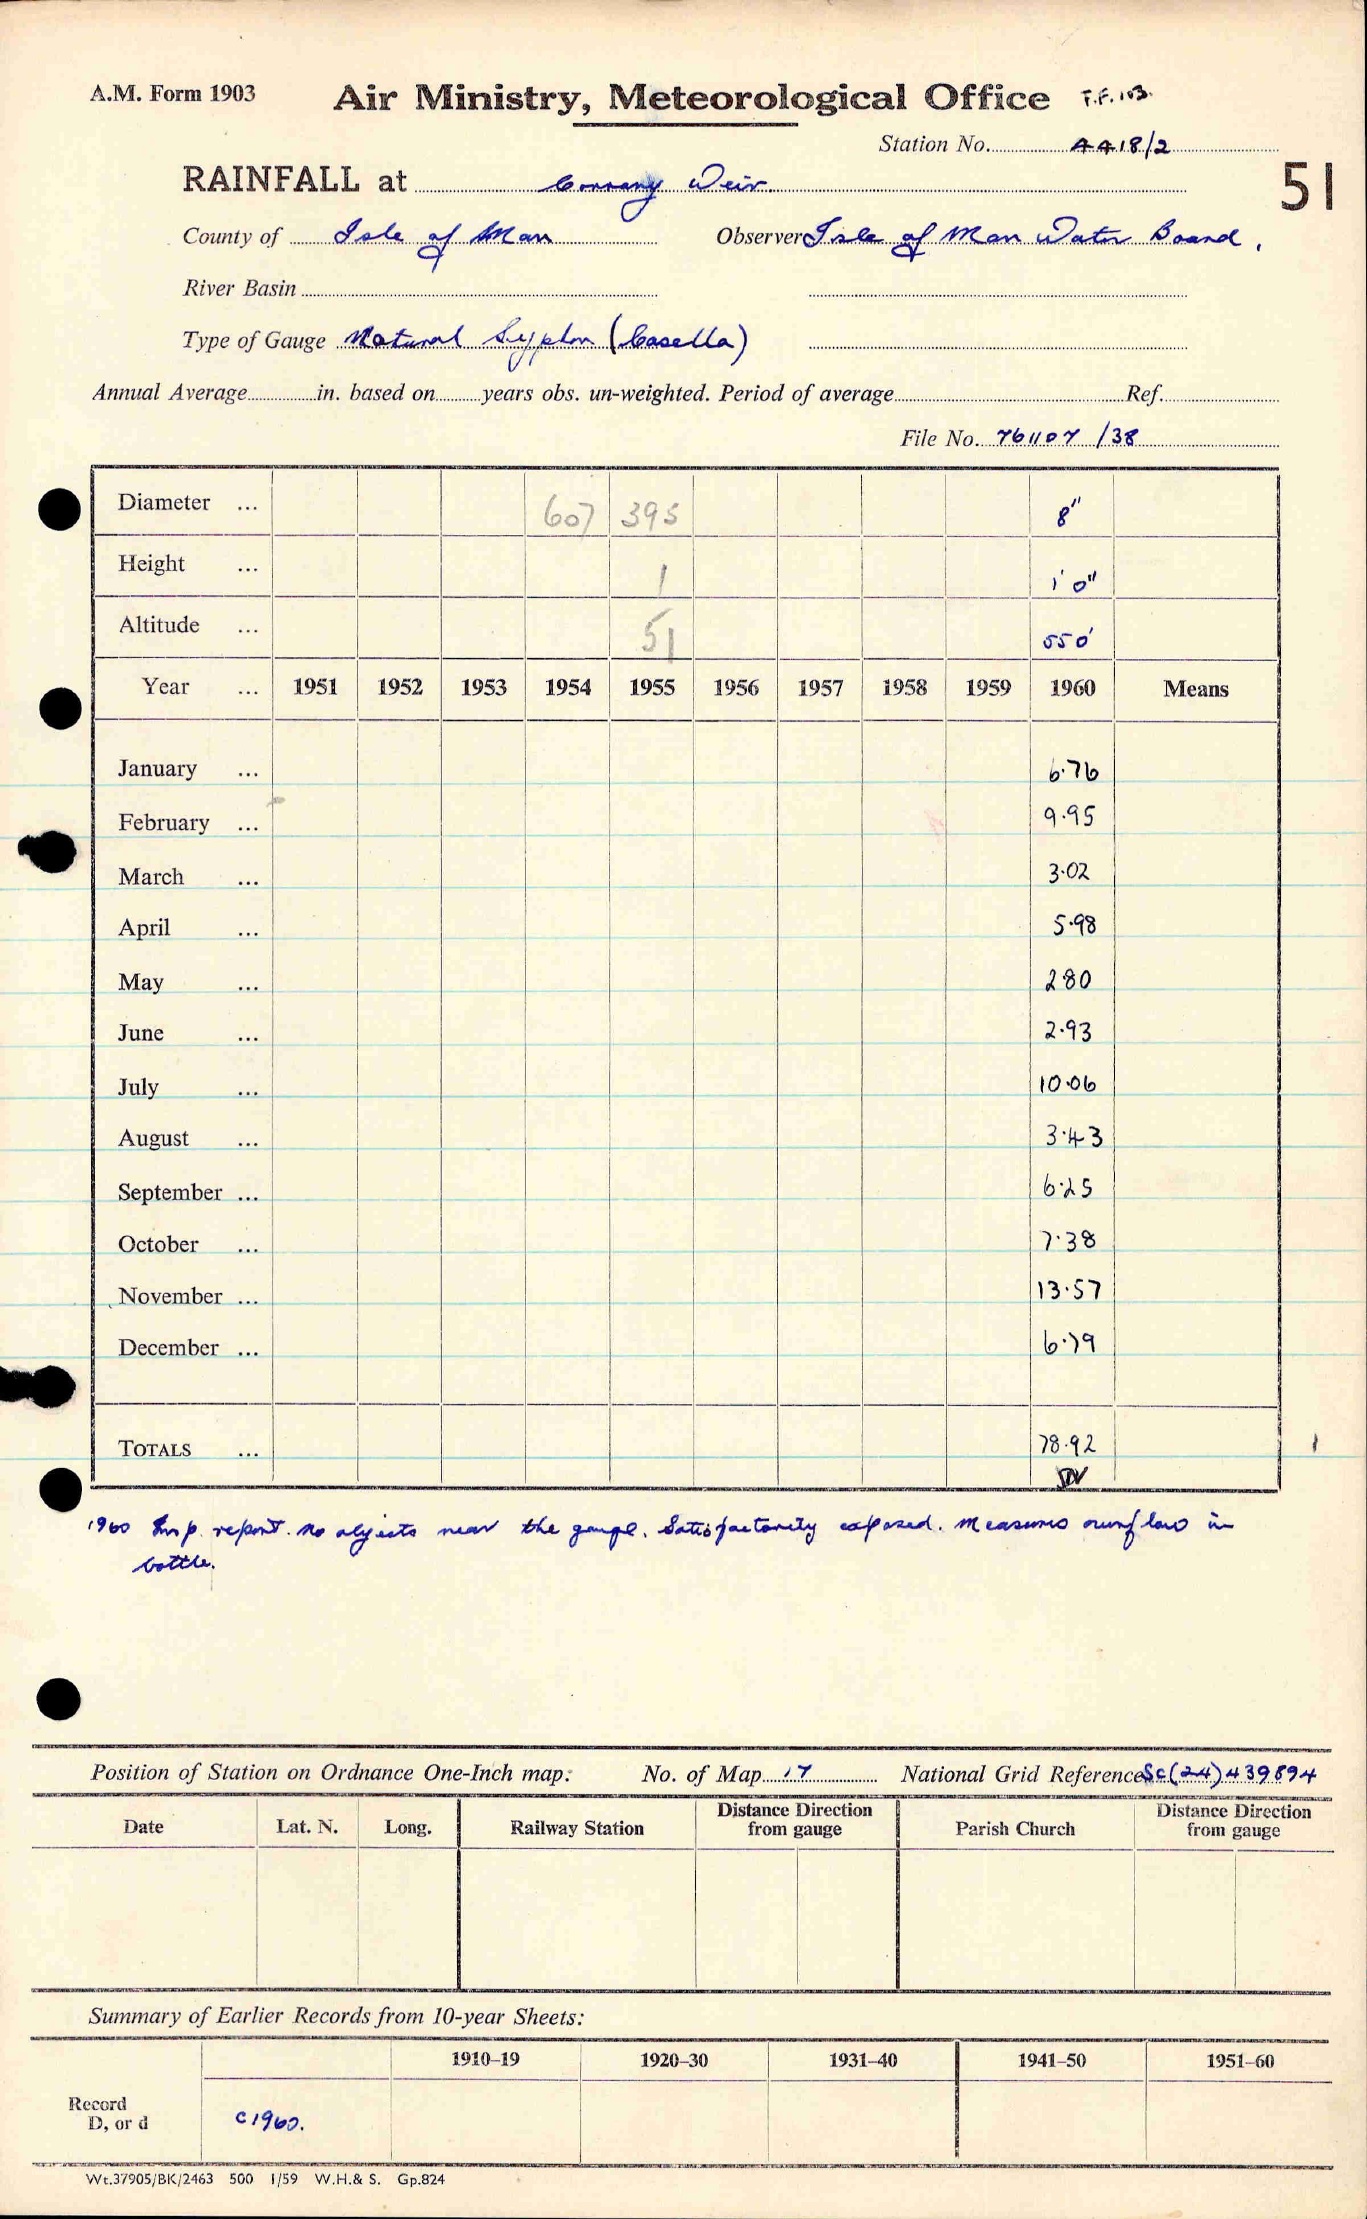 A.M. Form 1903 Air Ministry, Meteorological Office F.F. 103.
Station No. 4418/2
RAINFALL at Corrany Weir. 51
County of Isle of Man Observer Isle of Man Water Board.
River Basin
Type of Gauge Natural Syphon (Casella)
Annual Average in. based on years obs. un-weighted. Period of average Ref.
File No. 761107 /38
Diameter ... 607 395 8"
Height ... 1 1' 0"
Altitude ... 51 550'
Year ... 1951 1952 1953 1954 1955 1956 1957 1958 1959 1960 Means
January ... 6.76
February ... 9.95
March ... 3.02
April ... 5.98
May ... 2.80
June ... 2.93
July ... 10.06
August ... 3.43
September ... 6.25
October ... 7.38
November ... 13.57
December ... 6.79
TOTALS ... 78.92
1960 Insp. report. No objects near the gauge. Satisfactorily exposed. Measures overflow in
bottle.
Position of Station on Ordnance One-Inch map: No. of Map 17 National Grid Reference SC(24)439894
Date Lat. N. Long. Railway Station Distance Direction from gauge Parish Church Distance Direction from gauge
Summary of Earlier Records from 10-year Sheets:
1910–19 1920–30 1931–40 1941–50 1951–60
Record
D, or d c1960.
Wt.37905/BK/2463 500 1/59 W.H.& S. Gp.824